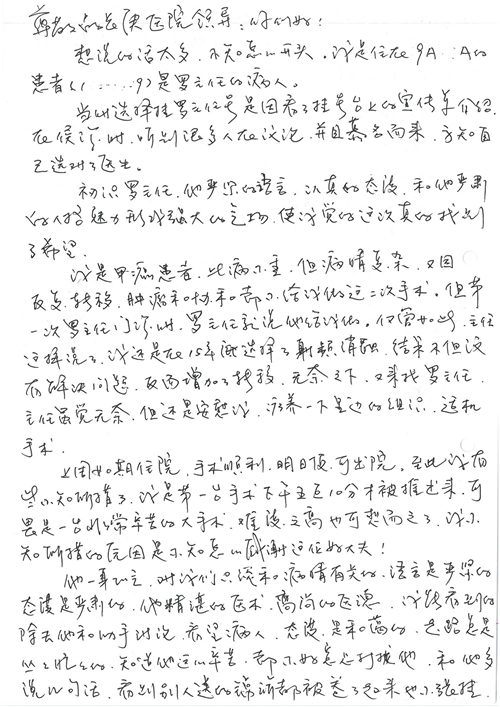 尊敬的 医院领导：你们好！
想说的话太多，不知怎么开头。我是住在9A A的
患者(1……9)是罗主任的病人。
当时选择挂罗主任号是因看了挂号台上的宣传单介绍，
在候诊时，听到很多人在议论，并且慕名而来，方知自
己选对了医生。
初识罗主任，他严谨的语言、认真的态度、和他严肃
的人格魅力形成强大的气场，使我觉的这次真的找到
了希望。
我是甲癌患者，此病不重，但病情复杂，又因
反复转移，肿瘤和协和都不给我做这二次手术。但第
一次罗主任门诊时，罗主任就说他给我做。但尽管如此，主任
这样说了，我还是在 选择了射频消融，结果不但没
有解决问题，反而增加了转移，无奈之下，又来找罗主任，
主任虽觉无奈，但还是安慰我，疗养一下 边的组织，适机
手术。
上周 期住院，手术顺利，明日便可出院，至此我有
些不知所措了，我是第一台手术下午五点10分才被推出来，可
畏是一台非常辛苦的大手术，难度之高也可想而之了，我不
知所措的原因是不知怎么感谢这位好大夫！
他一身正，对我们只谈和病情有关的，语言是严谨的
态度是严肃的，他精湛的医术、高尚的医德，我能看到的
除去他和助手讲说，看望病人，态度是和蔼的，走路总是
匆匆忙忙的，知道他这么辛苦，都不好意思打扰他，和他多
说几句话，看到别人送的锦旗都被卷了起来也不张挂，